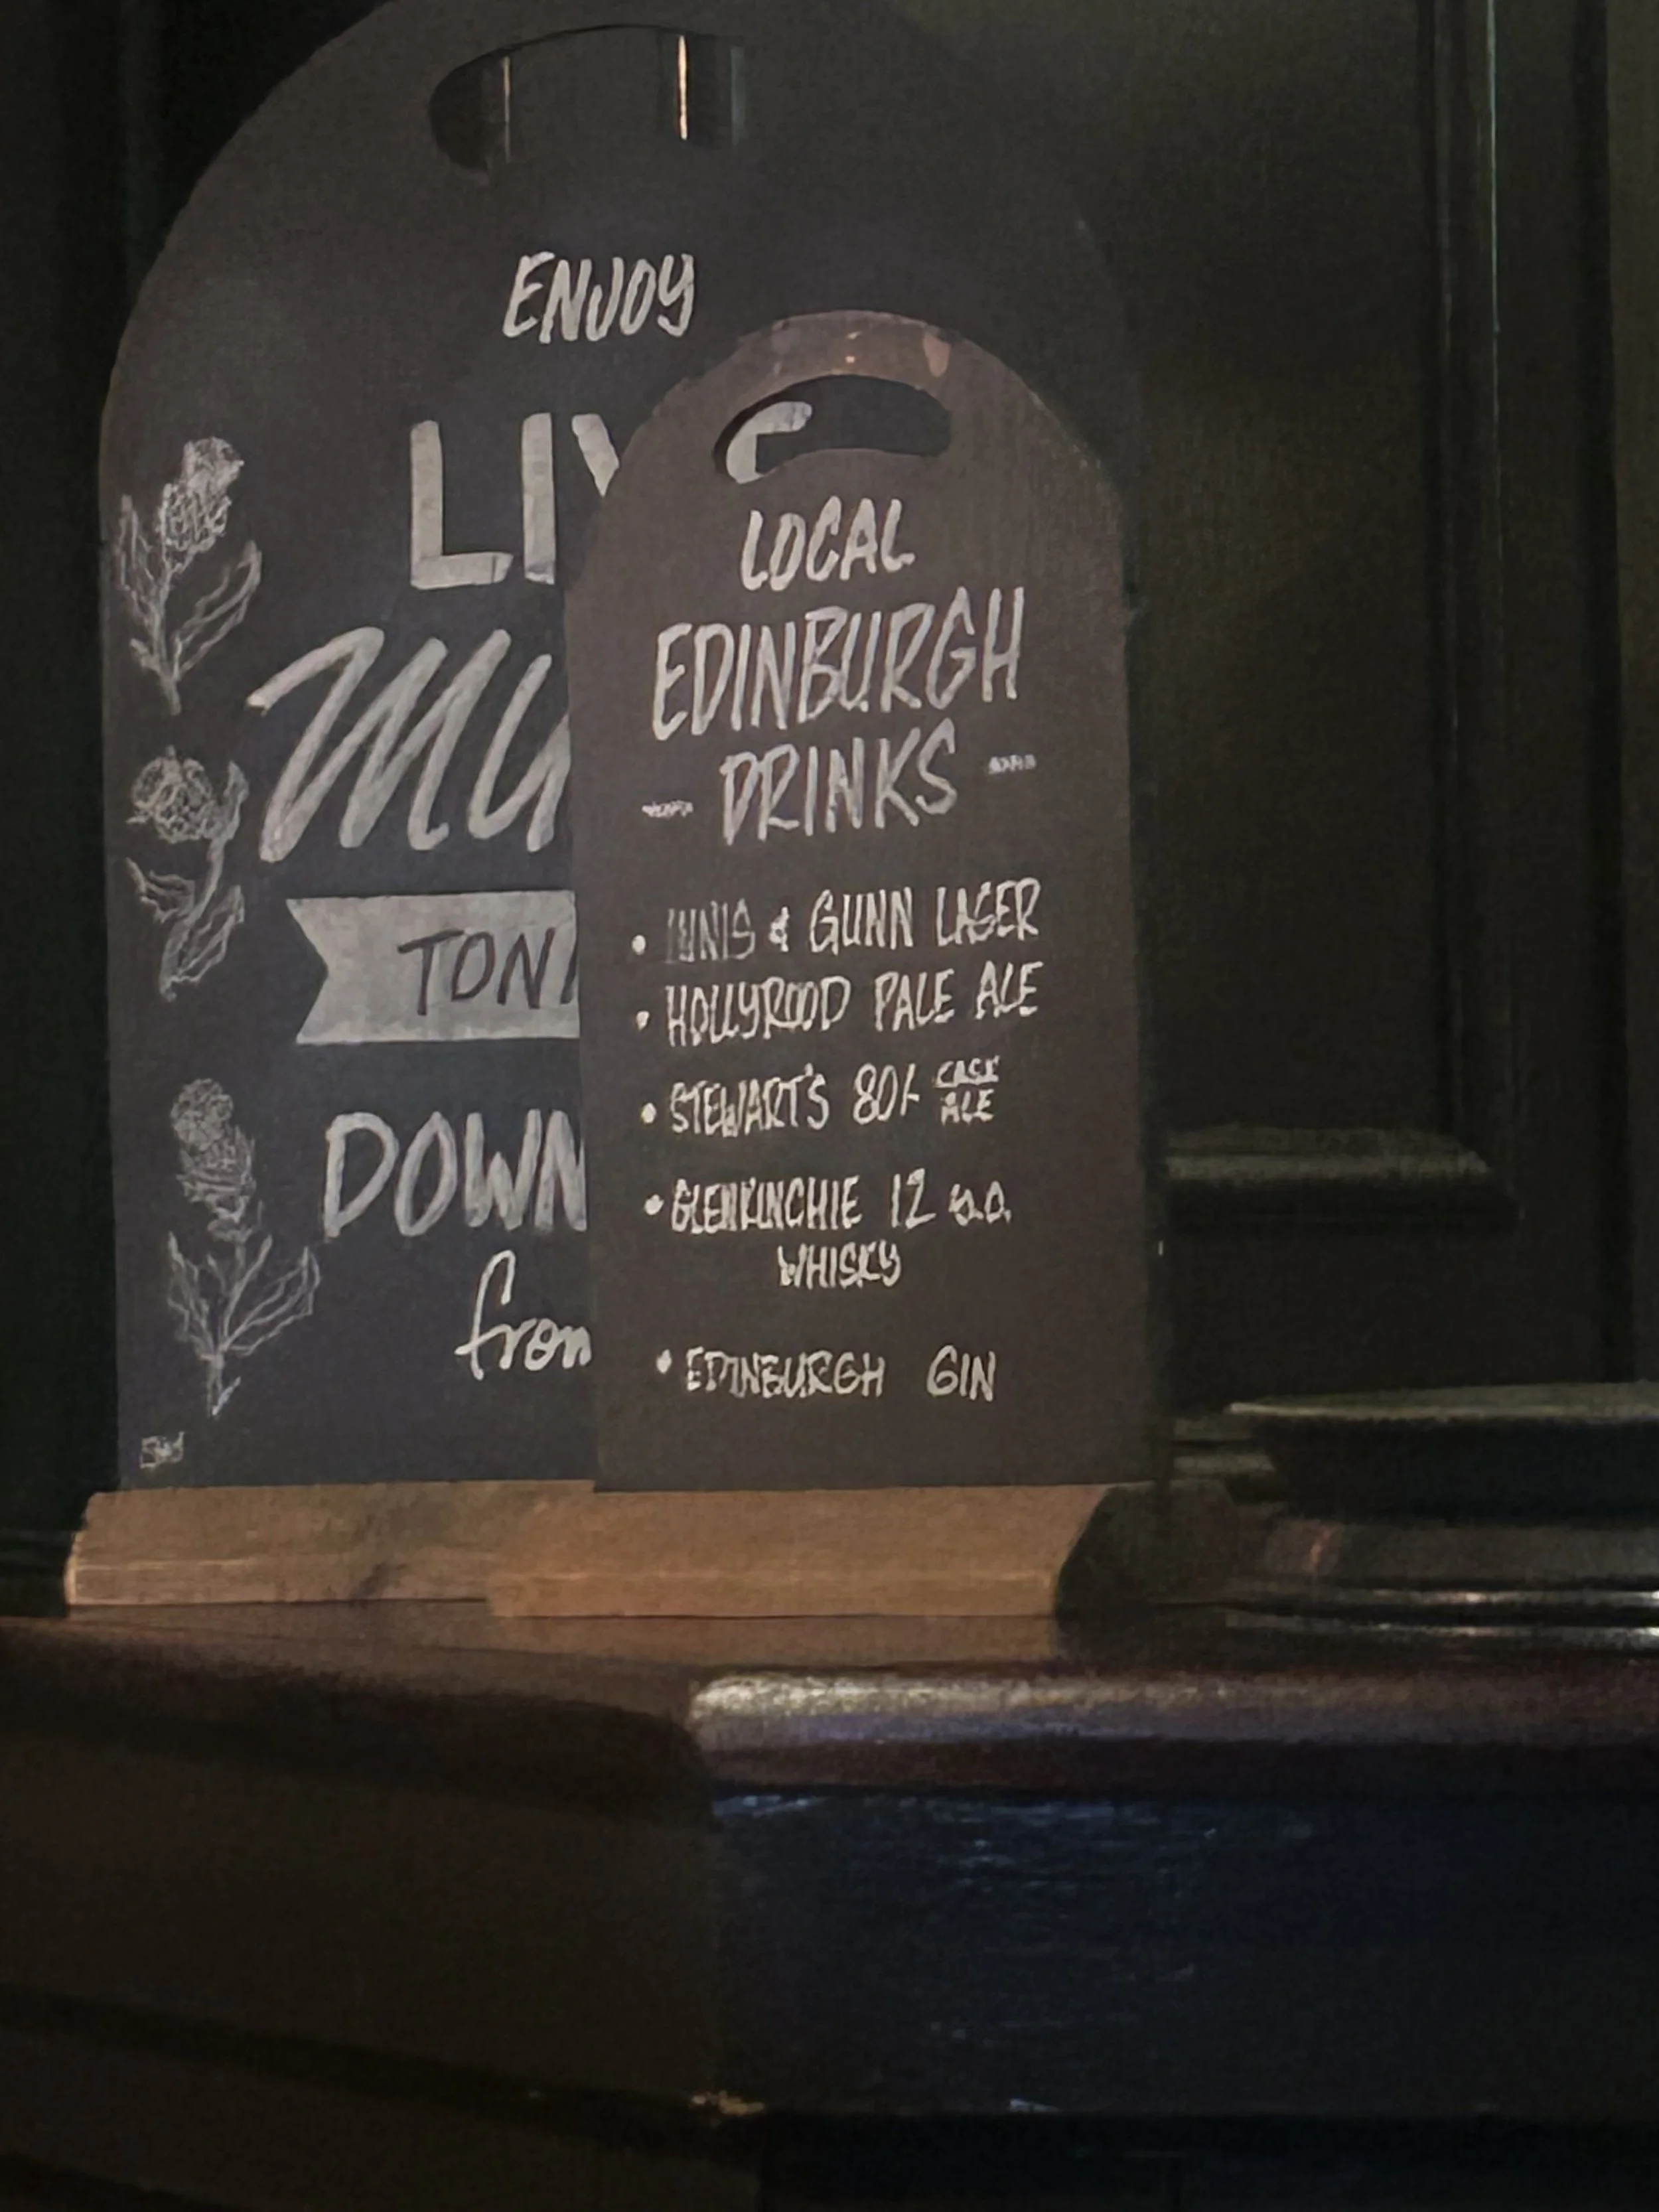 ENJOY
LIVE
MU
TONI
DOWN
from
LOCAL
EDINBURGH
- DRINKS -
• INNIS & GUNN LAGER
• HOLLYROOD PALE ALE
• STEWART'S 80/- CASK
ALE
• GLENKINCHIE 12 y.o.
WHISKY
• EDINBURGH GIN